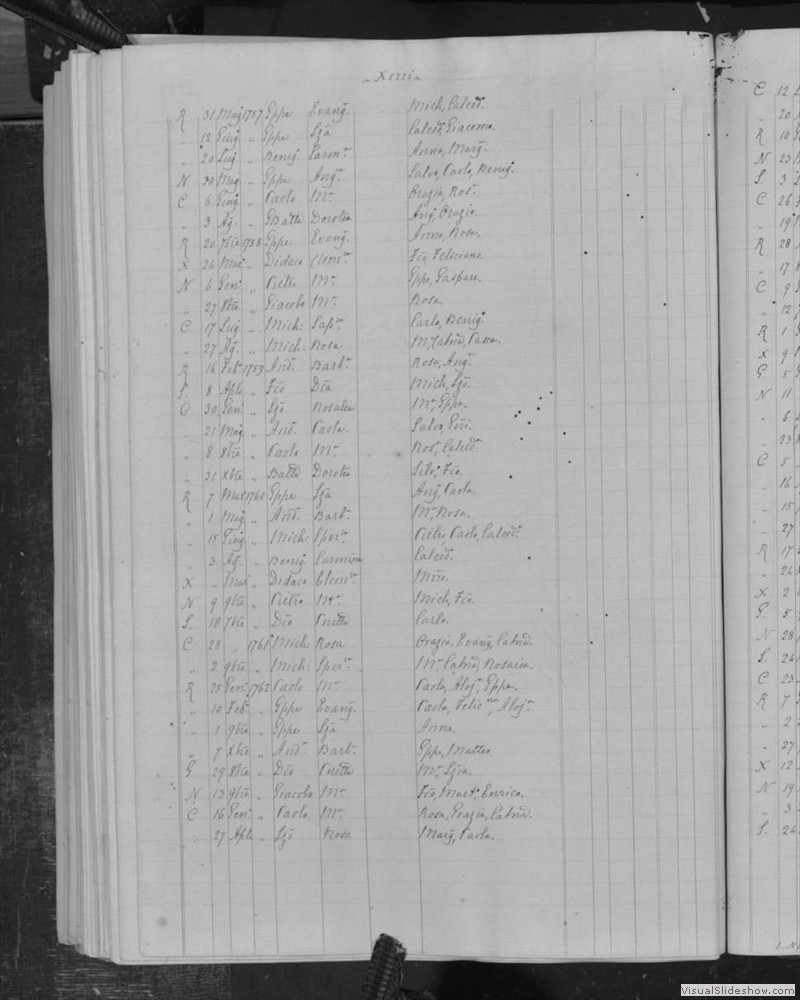 Xerri
R 31 Mag 1757 Gppe Evang. Mich, Calced.
" 12 Giug " Gppe Lza Calced, Giacoma.
" 20 Lug. " Benig. Carm.ª Anna, Marg.
N 30 Mag. " Gppe Ang.ª Salv, Paolo, Benig.
C 6 Giug " Paolo M.ª Grazia, Ros.ª
" 3 Ag. " GBatta Dorotea Ang, Grazia.
R 20 7bre 1758 Gppe Evang. Anna, Rosa.
X 26 Mar. " Didaco Clem.ª Fco, Feliciana.
N 6 Gen. " Pietro M.ª Gppe, Gaspare.
" 27 8bre " Giacobo M.ª Rosa.
C 17 Lug. " Mich: Sap.ª Carlo, Benig.
" 27 Ag. " Mich: Rosa M.ª, Catna,
R 16 Feb. 1759 And. Barb.ª Rosa, Ang.
S. 8 Aple " Fco Dca Mich, Lzo.
C 30 Gen. " Lzo Rosalea M.ª, Gppa.
" 21 Mag. " And. Paola Salvo,
" 8 Xbre " Paolo M.ª Ros.ª, Calced.ª
" 31 Xbre " Batta Dorotea Fca.
R 7 Mar 1760 Gppe Lza Ang, Paola.
" 1 Mag. " And. Barb.ª M.ª, Rosa.
" 15 Giug " Mich: Sper.ª Pietro, Paolo, Calced.
" 3 Ag. " Benig. Carmina Calced.
X " Mar. " Didaco Clem.ª
N 9 9bre " Pietro M.ª Mich, Fco.
S. 18 7bre " Dco Carlo.
C 28 " 1761 Mich: Rosa Grazia, Evang, Catna.
" 2 9bre " Mich: Sper.ª M.ª, Catna, Rosaria.
R 25 Gen. 1762 Paolo M.ª Paola, Aloj.ª, Gppa.
" 10 Feb. " Gppe Evang. Paola, Felic.ª, Aloj.ª
" 1 9bre " Gppe Lza Anna.
" 7 Xbre " And. Barb.ª Gppe, Matteo.
G. 29 8bre " Dco M.ª, Lza.
N 13 9bre " Giacobo M.ª Fco, Mart.ª, Enrico.
C 16 Gen. " Paolo M.ª Rosa, Grazia, Catna.
" 27 Aple " Lzo Rosa Marg, Paola.
C 12
" 20
R 10
N 23
S. 3
C 26
" 19
R 28
" 17
C 9
" 12
R 1
X 9
G. 5
N 11
" 6
" 23
C 5
" 16
" 15
" 27
R 17
" 26
X 2
G. 5
N 28
S. 24
C 23
R 7
" 2
" 27
X 12
N 19
" 3
S. 24
VisualSlideshow.com